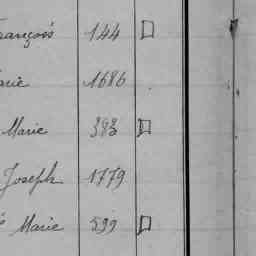 François 144
Marie 1686
Marie 393
Joseph 1779
Marie 599